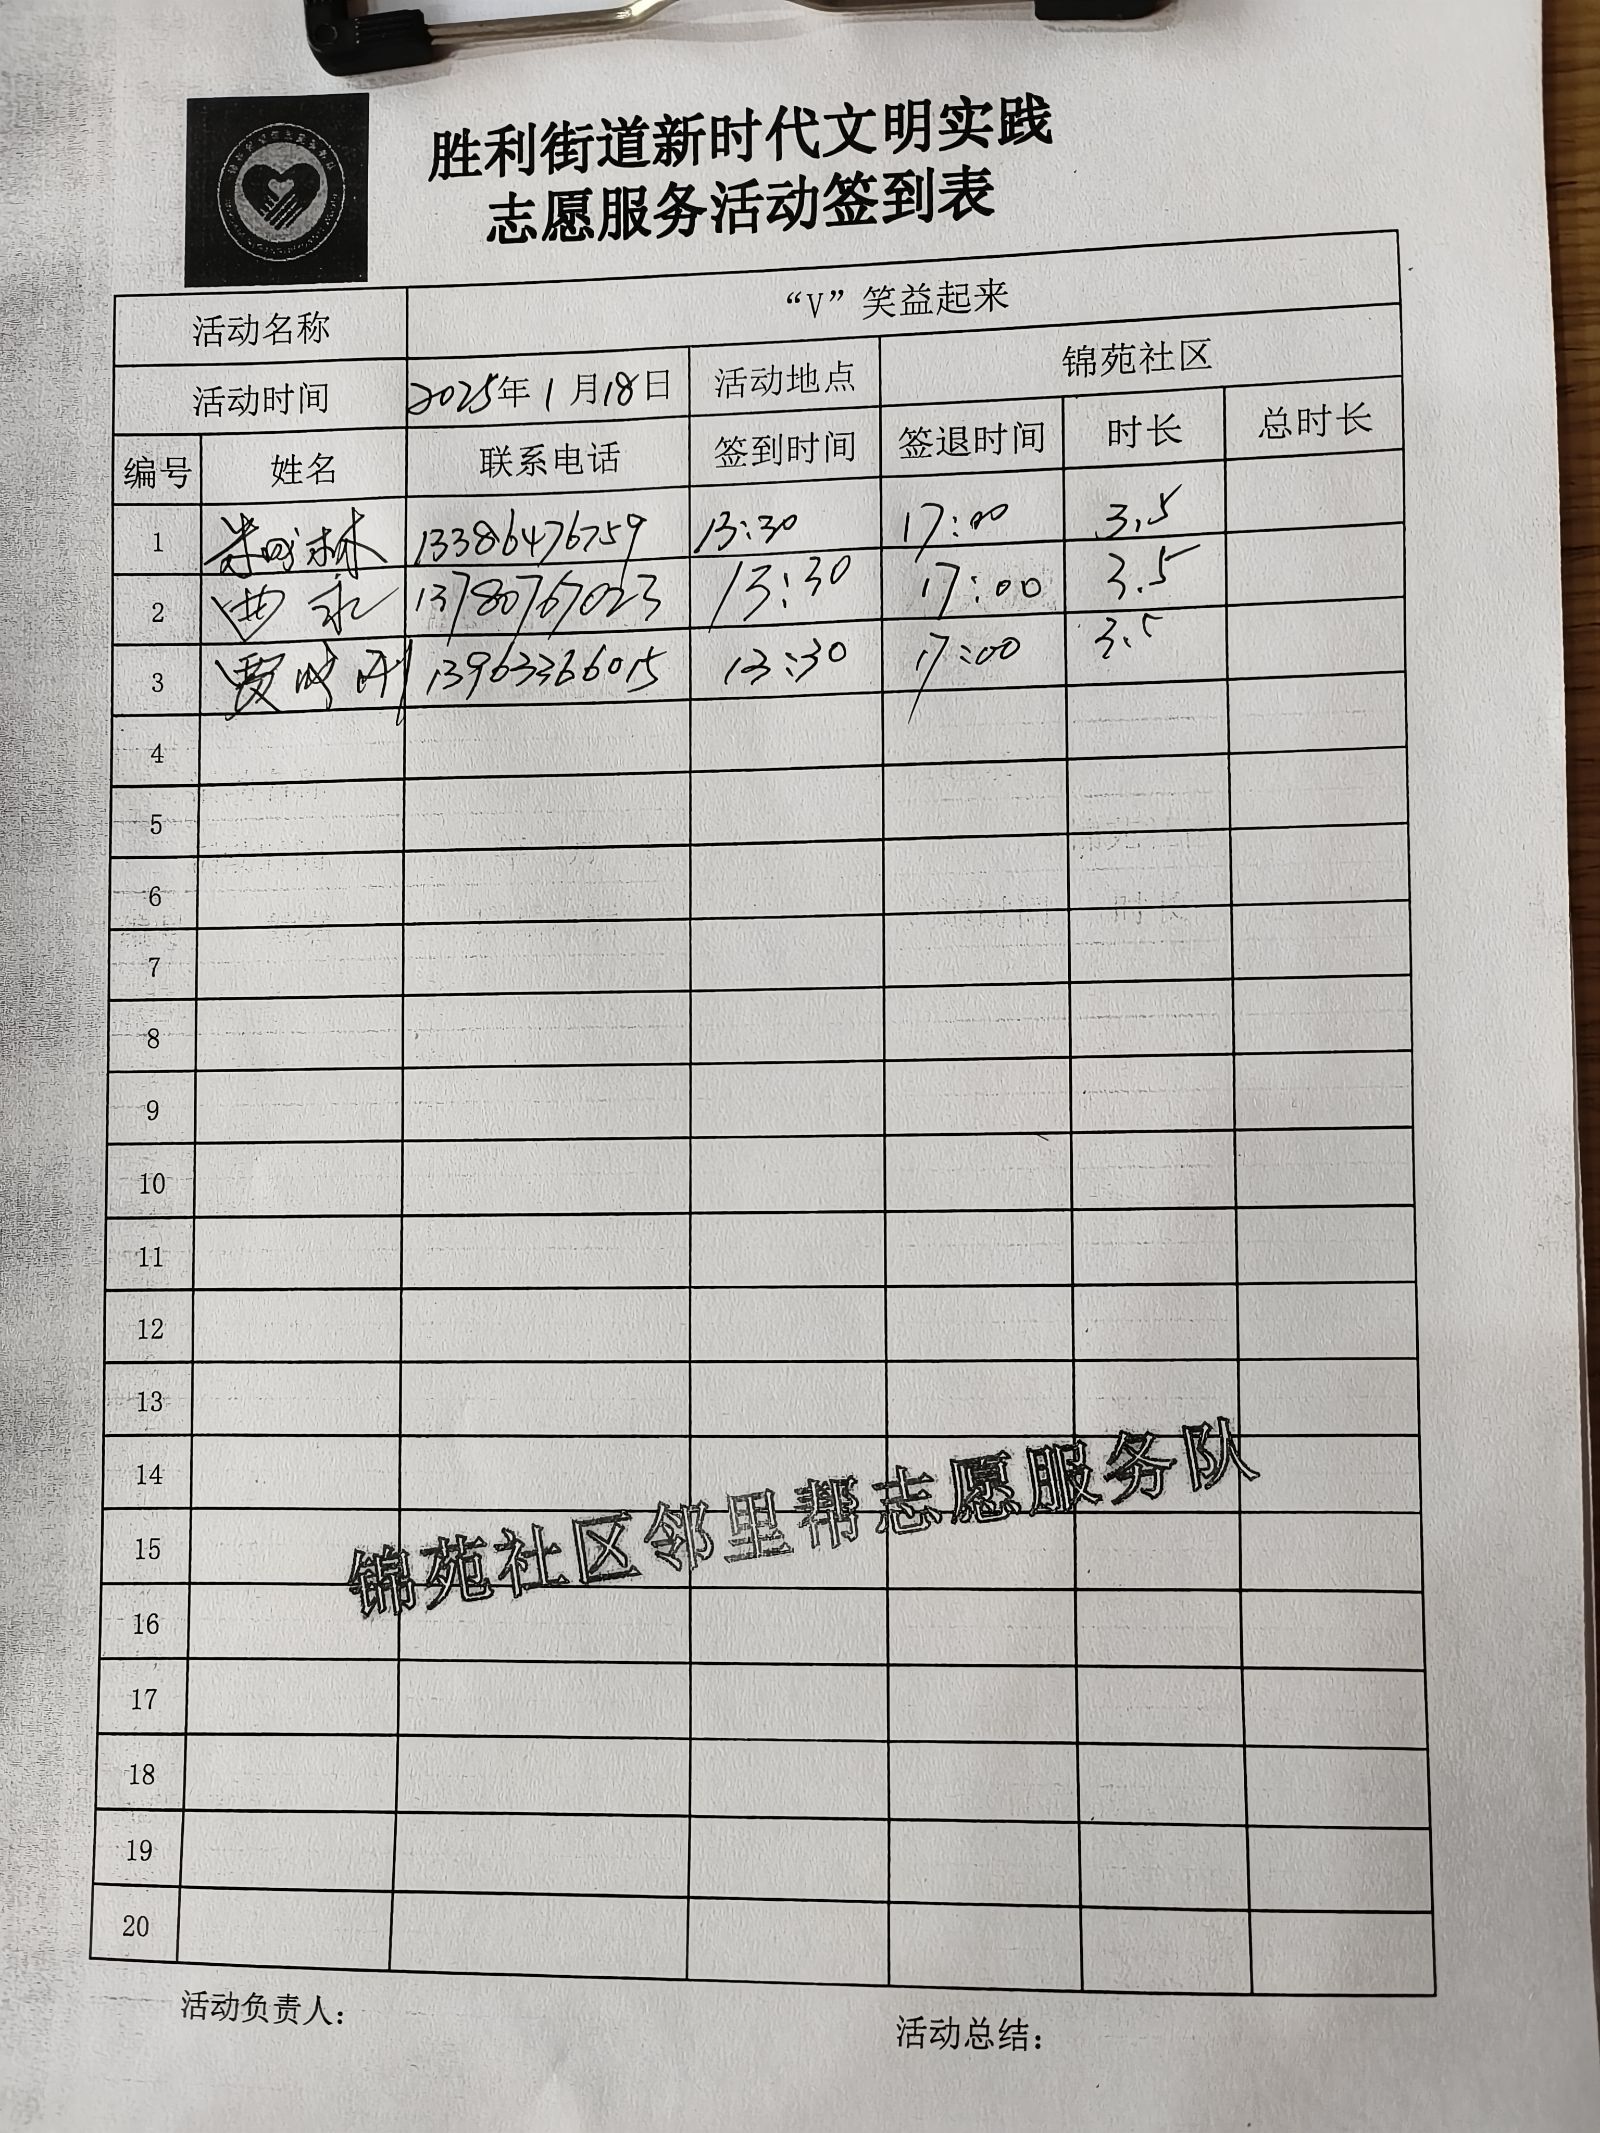 胜利街道新时代文明实践
志愿服务活动签到表
活动名称 “V”笑益起来
活动时间 2025年1月18日 活动地点 锦苑社区
编号 姓名 联系电话 签到时间 签退时间 时长 总时长
1 13386476759 13:30 17:00 3.5
2 13780767023 13:30 17:00 3.5
3 13963366015 13:30 17:00 3.5
4
5
6
7
8
9
10
11
12
13
14
15
16
17
18
19
20
锦苑社区邻里帮志愿服务队
活动负责人： 活动总结：